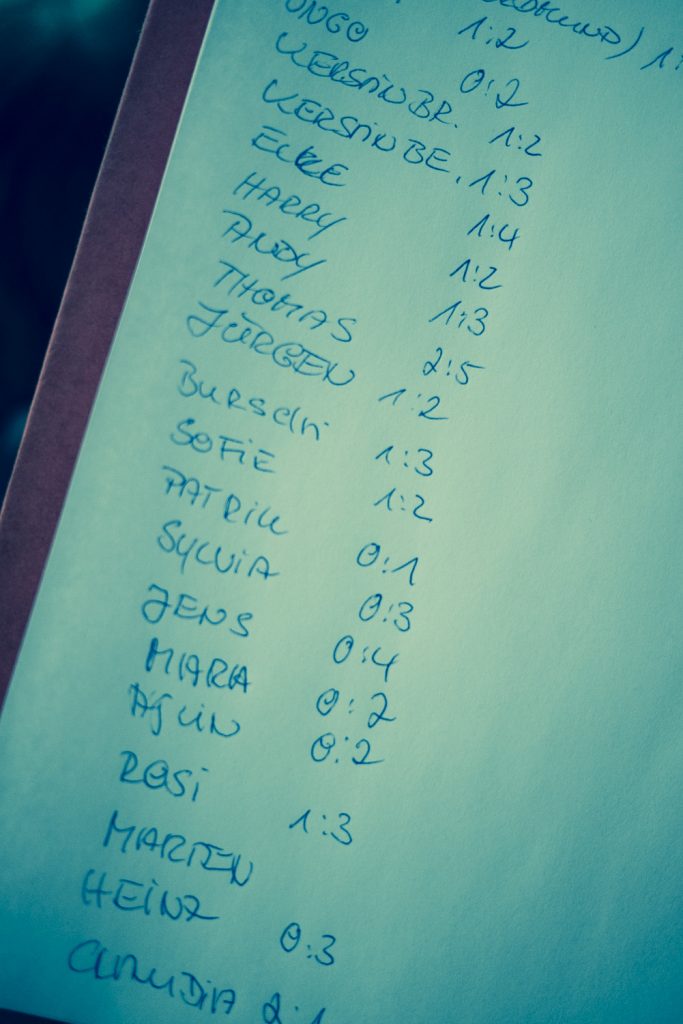 DORTMUND) 1:
1:2
INGO 0:2
KERSTIN BR. 1:2
KERSTIN BE. 1:3
ECKE 1:4
HARRY 1:2
ANDY 1:3
THOMAS 2:5
JÜRGEN 1:2
BURSCHI 1:3
SOFIE 1:2
PATRICK 0:1
SYLVIA 0:3
JENS 0:4
MARIA 0:2
AYLIN 0:2
ROSI 1:3
MARTEN
HEINZ 0:3
CLAUDIA 2:1